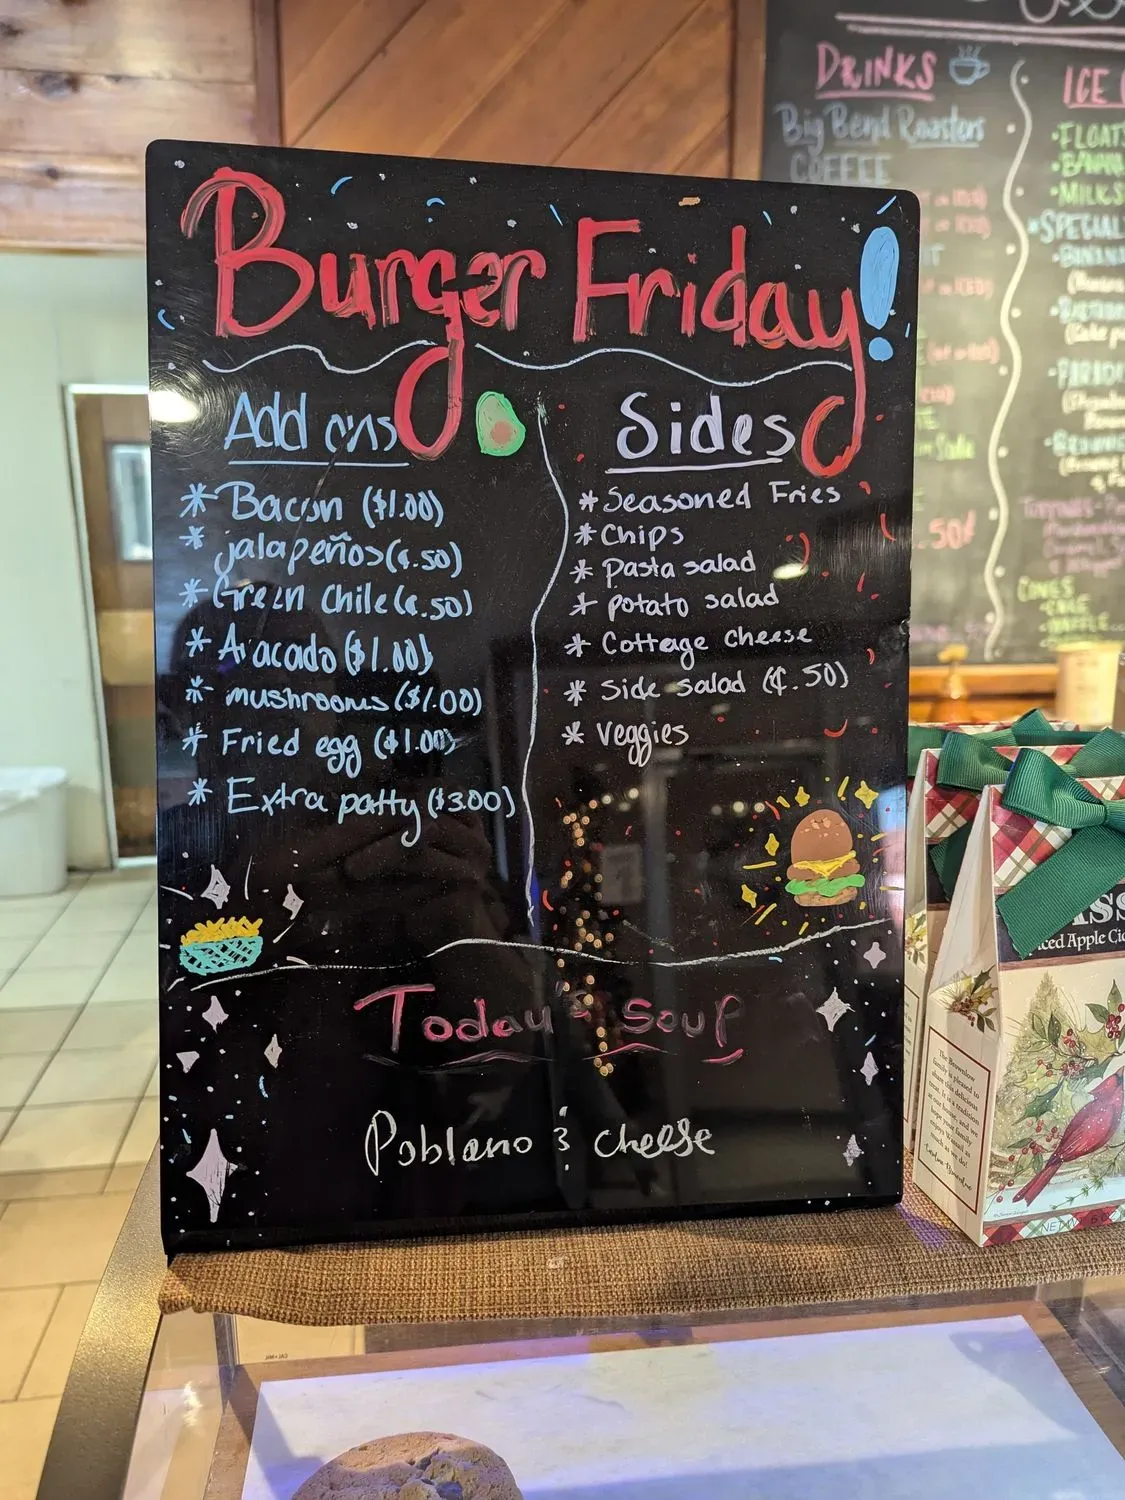 Burger Friday!
Add ons
* Bacon ($1.00)
* jalapeños (¢.50)
* Green Chile (¢.50)
* Avacado ($1.00)
* mushrooms ($1.00)
* Fried egg ($1.00)
* Extra patty ($3.00)
Sides
* Seasoned Fries
* Chips
* Pasta salad
* potato salad
* Cottage cheese
* Side salad (¢.50)
* Veggies
Today's Soup
Poblano & cheese
DRINKS
Big Bend Roasters
COFFEE
.50¢
ICE
•FLOATS
•BANANA
•MILKS
•SPECIAL
The Brownlow
family is pleased to
share this delicious
Apple Cid
NET W